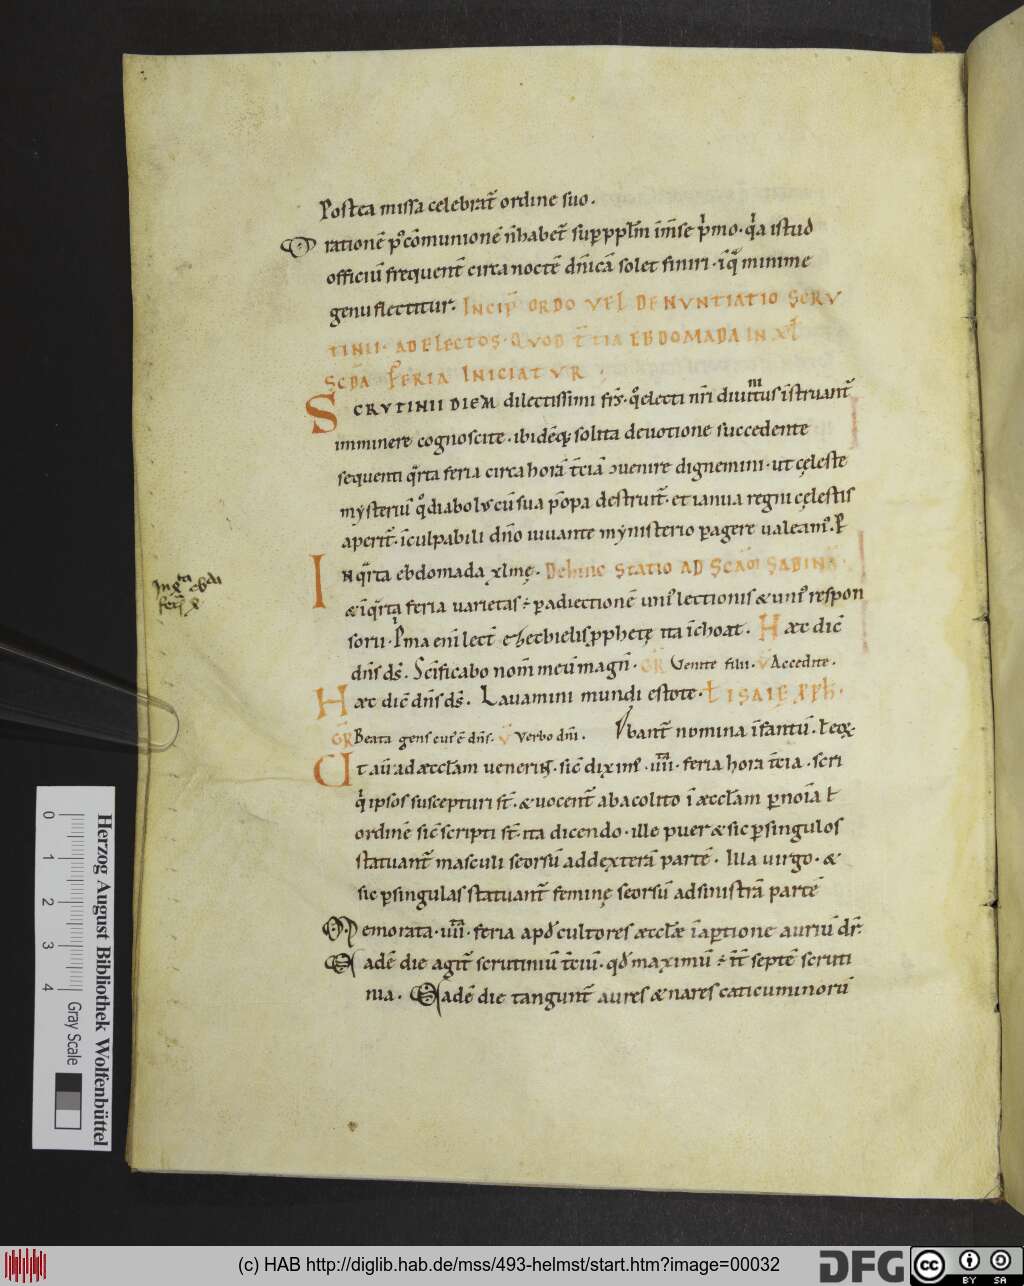 Postea missa celebrat̄ ordine suo.
Orationē p̊ cōmunionē n̄ habet̄ sup pplm̄ ī m̄se p̍mo· q̍a istud
officiū frequent̄ circa noctē dn̄icā solet finiri· ī q̄ minime
genu flectitur. INCIP̄ ORDO VEL DENVNTIATIO SCRV
TINII· AD ELECTOS· QVOD T̄TIA EBDOMADA IN XL̄
SCDA FERIA INICIATVR.
SCRVTINII DIEM dilectissimi frs̄· q̊ electi nr̄i diuinitus īstruant̄
imminere cognoscite· ibidēq; solita deuotione succedente
sequenti q̍rta feria circa horā t̄ciā ɔuenire dignemini· ut cęleste
mẏsteriū q̊ diabolus cū sua pōpa destruit̄· et ianua regni cęlestis
aperit̄· īculpabili dn̄o iuuante mẏnisterio pagere ualeam᷒.
IN q̍rta ebdomada xlmę· Dehinc statio AD SCAM SABINĀ
& ī q̍rta feria uarietas ÷ p adiectionē uni᷒ lectionis & uni᷒ respon
sorii· P̍ma eni lect̄ ezechielis pphetę ita īchoat. Hæc dic̄
dn̄s ds̄. Sc̄ificabo nom̄ meū magn̄· GR Venite filii. V Accedite.
Hæc dic̄ dn̄s ds̄. Lauamini mundi estote· ł ISAIĘ PPH·
GR Beata gens cui᷒ ē dn̄s. V Verbo dn̄i.
Ut aū ad æccłam uenerint̄· sic̄ dixim᷒· iiii· feria hora t̄cia· scri
ordinē sic̄ scripti st̄· ita dicendo· ille puer & sic p singulos
statuant̄ masculi seorsū ad dexterā partē· Illa uirgo· &
sic p singulas statuant̄ feminę seorsū ad sinistrā partē
Memorata· iiii· feria apd̄ cultores æccłæ ī aptione auriū dr̄·
Eadē die agit̄ scrutiniū t̄ciū· qd̄ maximū ÷ īt̄ septē scruti
nia. Eadē die tangunt̄ aures & nares caticuminorū
Herzog August Bibliothek Wolfenbüttel
0 1 2 3 4
Gray Scale
(c) HAB http://diglib.hab.de/mss/493-helmst/start.htm?image=00032
DFG
cc BY SA